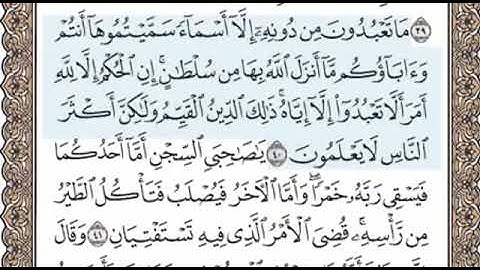 ٣٩ مَا تَعْبُدُونَ مِن دُونِهِۦٓ إِلَّآ أَسْمَآءً سَمَّيْتُمُوهَآ أَنتُمْ
وَءَابَآؤُكُم مَّآ أَنزَلَ ٱللَّهُ بِهَا مِن سُلْطَٰنٍ ۚ إِنِ ٱلْحُكْمُ إِلَّا لِلَّهِ
أَمَرَ أَلَّا تَعْبُدُوٓا۟ إِلَّآ إِيَّاهُ ۚ ذَٰلِكَ ٱلدِّينُ ٱلْقَيِّمُ وَلَٰكِنَّ أَكْثَرَ
ٱلنَّاسِ لَا يَعْلَمُونَ ٤٠ يَٰصَٰحِبَىِ ٱلسِّجْنِ أَمَّآ أَحَدُكُمَا
فَيَسْقِى رَبَّهُۥ خَمْرًا ۖ وَأَمَّا ٱلْءَاخَرُ فَيُصْلَبُ فَتَأْكُلُ ٱلطَّيْرُ
مِن رَّأْسِهِۦ ۚ قُضِىَ ٱلْأَمْرُ ٱلَّذِى فِيهِ تَسْتَفْتِيَانِ ٤١ وَقَالَ